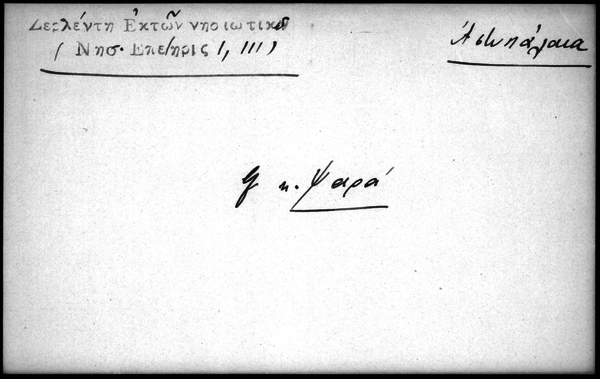 Δερλέντη Ἐκτῶν νησιωτικῶ
(Νησ. Επετηρις 1, 111)
Ἀστυπάλαια
κ. Ψαρά